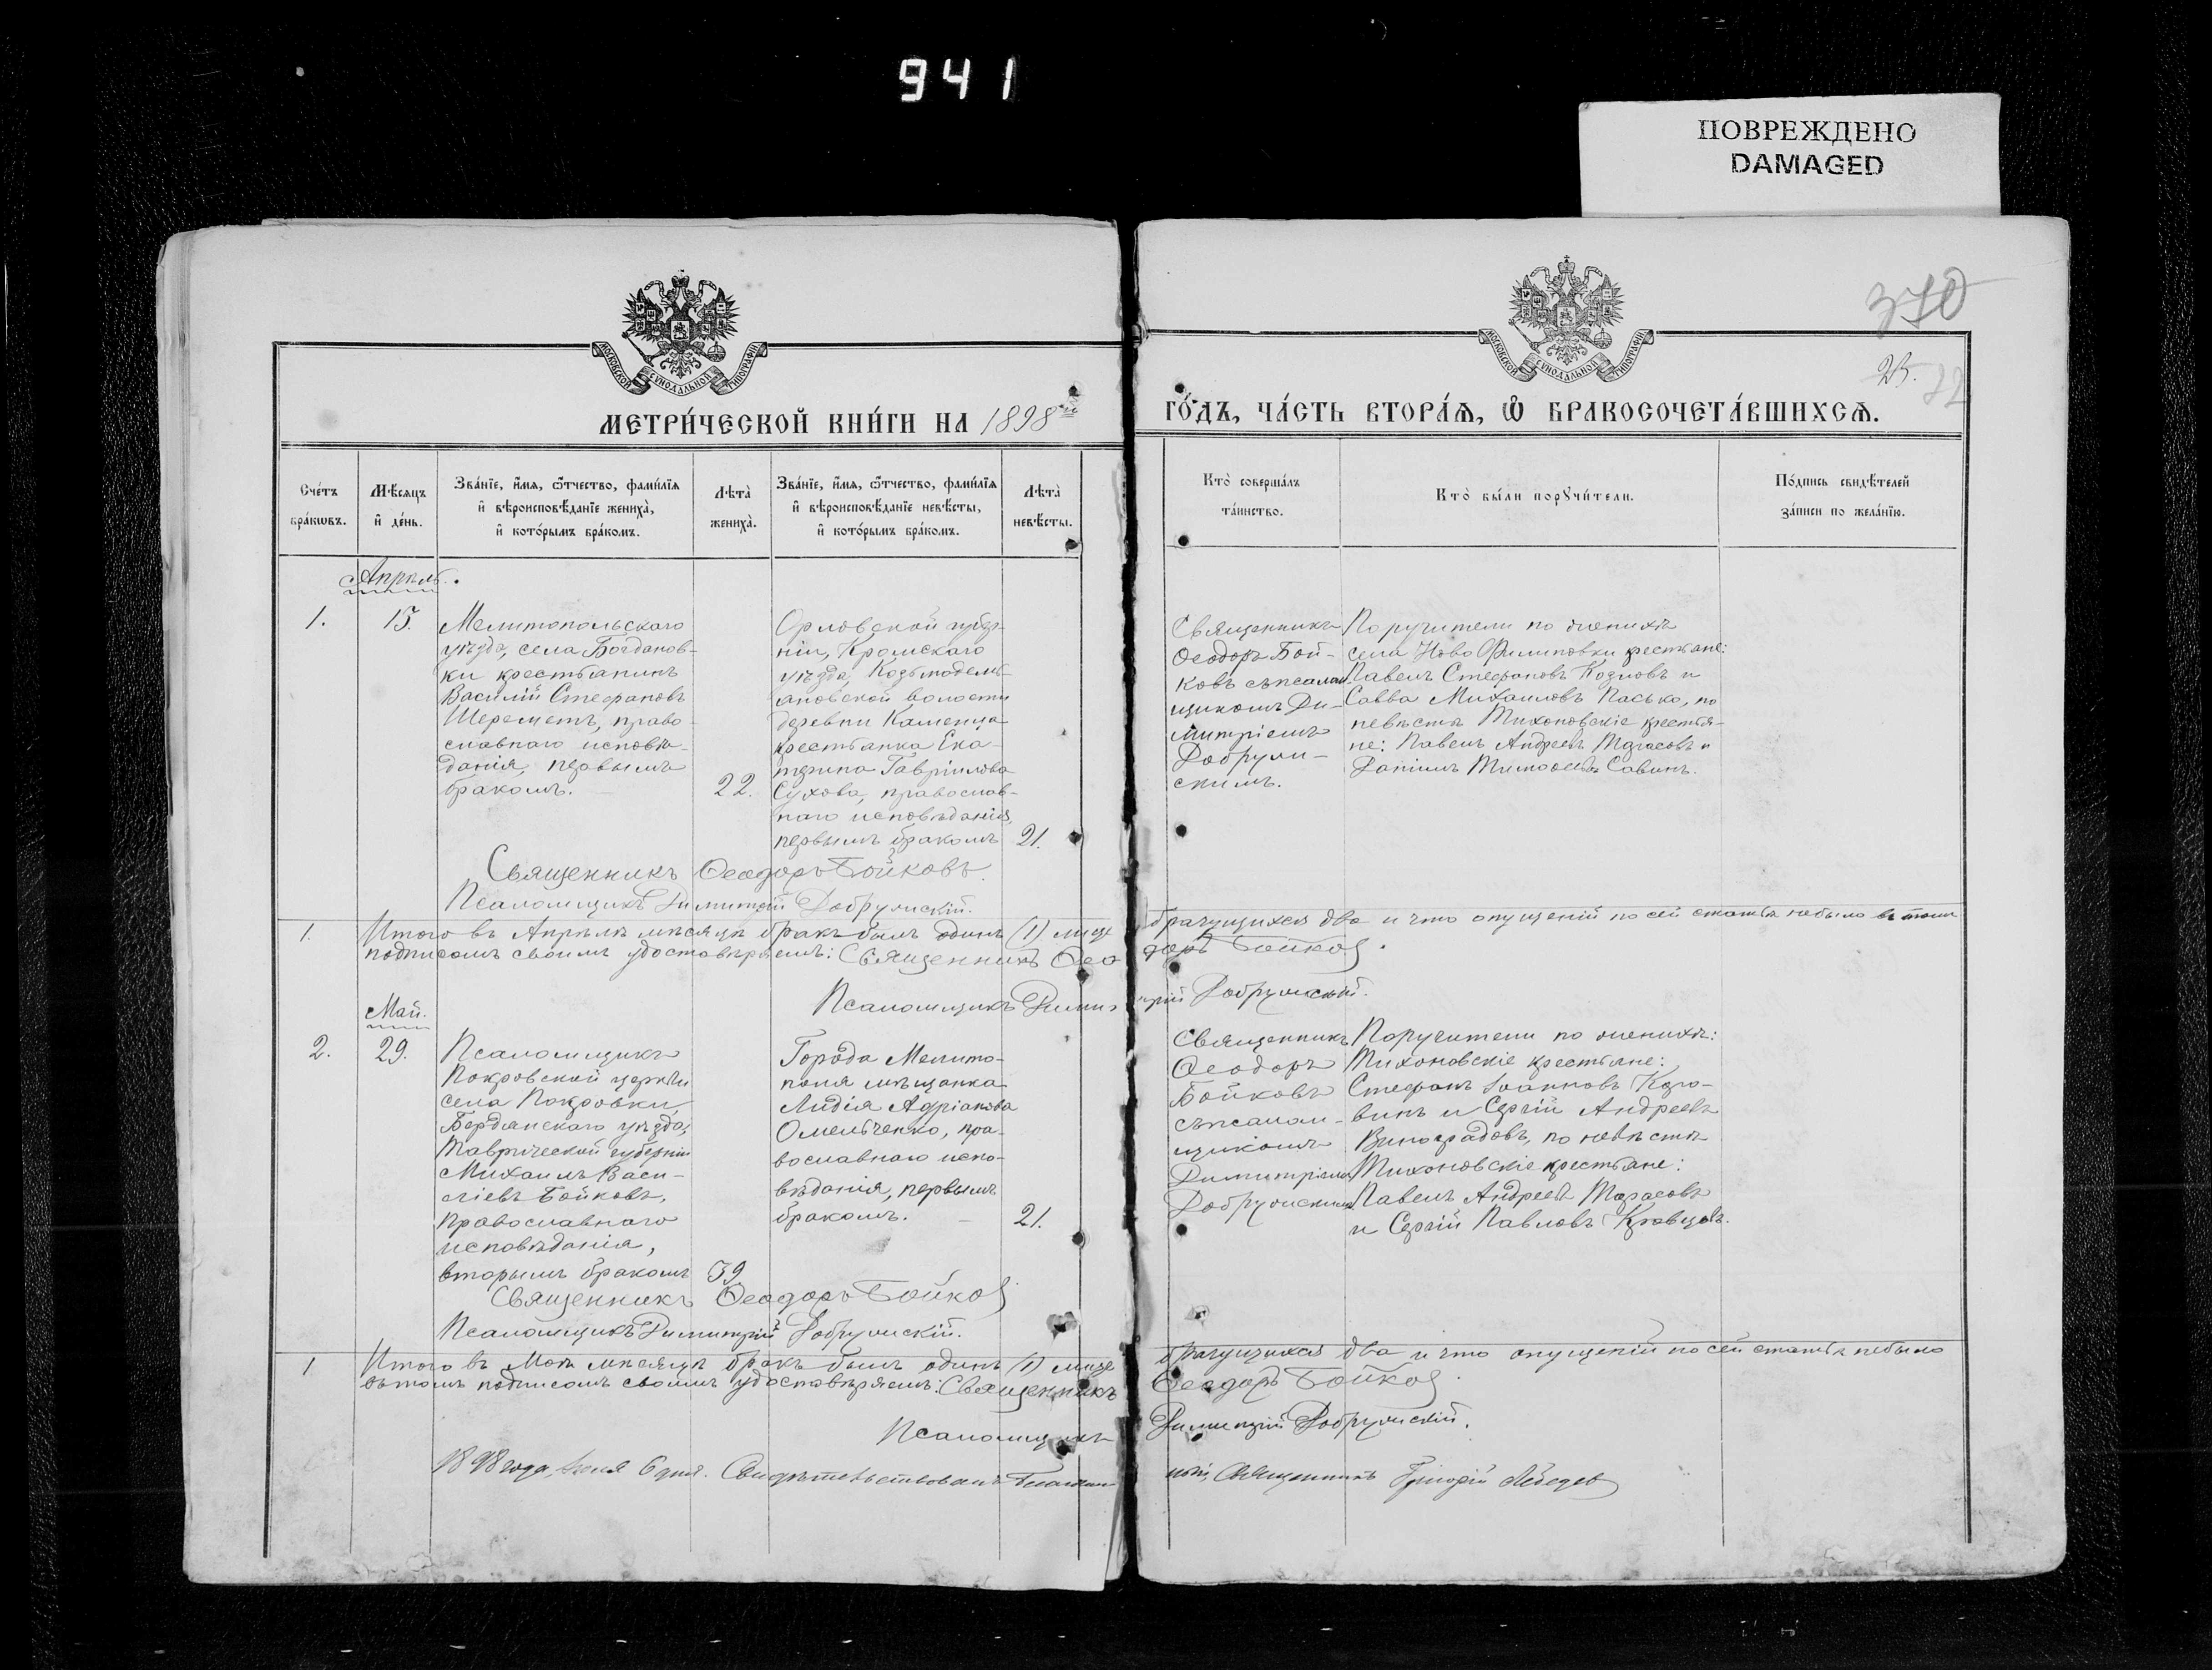 941
ПОВРЕЖДЕНО
DAMAGED
370
25.
МОСКОВСКОЙ СѴНОДАЛЬНОЙ ТИПОГРАФІИ
МОСКОВСКОЙ СѴНОДАЛЬНОЙ ТИПОГРАФІИ
МЕТРИ́ЧЕСКОЙ КНИ́ГИ НА 1898 ГО́ДЪ, ЧА́СТЬ ВТОРА́Ѧ, Ѽ БРАКОСОЧЕТА́ВШИХСѦ.
Сче́тъ
бра́кѡвъ.
Мѣ́сѧцъ
и҆ де́нь.
Зва́нїе, и҆́мѧ, ѻ҆́тчество, фами́лїѧ
и҆ вѣроисповѣ́данїе жениха̀,
и҆ кото́рымъ бра́комъ.
Лѣта̀
жениха̀.
Зва́нїе, и҆́мѧ, ѻ҆́тчество, фами́лїѧ
и҆ вѣроисповѣ́данїе невѣ́сты,
и҆ кото́рымъ бра́комъ.
Лѣта̀
невѣ́сты.
Кто̀ соверша́лъ
та́инство.
Кто̀ бы́ли порꙋчи́тели.
По́дпись свидѣ́телей
за́писи по жела́нїю.
Апрѣль.
1.
15.
Мелитопольскаго
уѣзда, села Богданов-
ки крестьянинъ
Василій Стефановъ
Шереметъ, право-
славнаго исповѣ-
данія, первымъ
бракомъ.
22.
Орловской губер-
ніи, Кромскаго
уѣзда, Козьмодемь-
яновской волости
деревни Каменца
крестьянка Ека-
терина Гавріилова
Сухова, православ-
наго исповѣданія,
первымъ бракомъ
21.
Священникъ
Ѳеодоръ Бой-
ковъ съ псалом-
щикомъ Ди-
митріемъ
Добрум-
скимъ.
Поручители по женихѣ
села Ново Филиповки крестьяне:
Павелъ Стефановъ Козловъ и
Савва Михаиловъ Пасько, по
невѣстѣ Тихоновскіе крестья-
не: Павелъ Андреевъ Тарасовъ и
Даніилъ Тимоѳеевъ Савинъ.
Священникъ Ѳеодоръ Бойковъ.
Псаломщикъ Димитрій Добрумскій.
1.
Итого въ Апрѣлѣ мѣсяцѣ бракъ былъ одинъ (1) лицъ брачущихся два и что опущеній по сей статьѣ небыло въ томъ
подписомъ своимъ удостовѣряемъ: Священникъ Ѳеодоръ Бойковъ.
Псаломщикъ Димитрій Добрумскій.
Май.
2.
29.
Псаломщикъ
Покровской церкви
села Покровки,
Бердянскаго уѣзда,
Таврической губерніи
Михаилъ Васи-
ліевъ Бойковъ,
православнаго
исповѣданія,
вторымъ бракомъ
39
Города Мелито-
поля мѣщанка
Лидія Адріанова
Омельченко, пра-
вославнаго испо-
вѣданія, первымъ
бракомъ.
21.
Священникъ
Ѳеодоръ
Бойковъ
съ псалом-
щикомъ
Димитріемъ
Добрумскимъ
Поручители по женихѣ:
Тихоновскіе крестьяне:
Стефанъ Іоанновъ
и Сергій Андреевъ
Виноградовъ, по невѣстѣ
Тихоновскіе крестьяне:
Павелъ Андреевъ Тарасовъ
и Сергій Павловъ Кравцовъ.
Священникъ Ѳеодоръ Бойковъ
Псаломщикъ Димитрій Добрумскій.
1
Итого въ Маѣ мѣсяцѣ бракъ былъ одинъ (1) лицъ брачущихся два и что опущеній по сей статьѣ небыло
въ томъ подписомъ своимъ удостовѣряемъ: Священникъ Ѳеодоръ Бойковъ.
Псаломщикъ Димитрій Добрумскій.
1898 года, Іюня 6 дня. Свидѣтельствовалъ Благочинный, Священникъ Григорій Лебедев